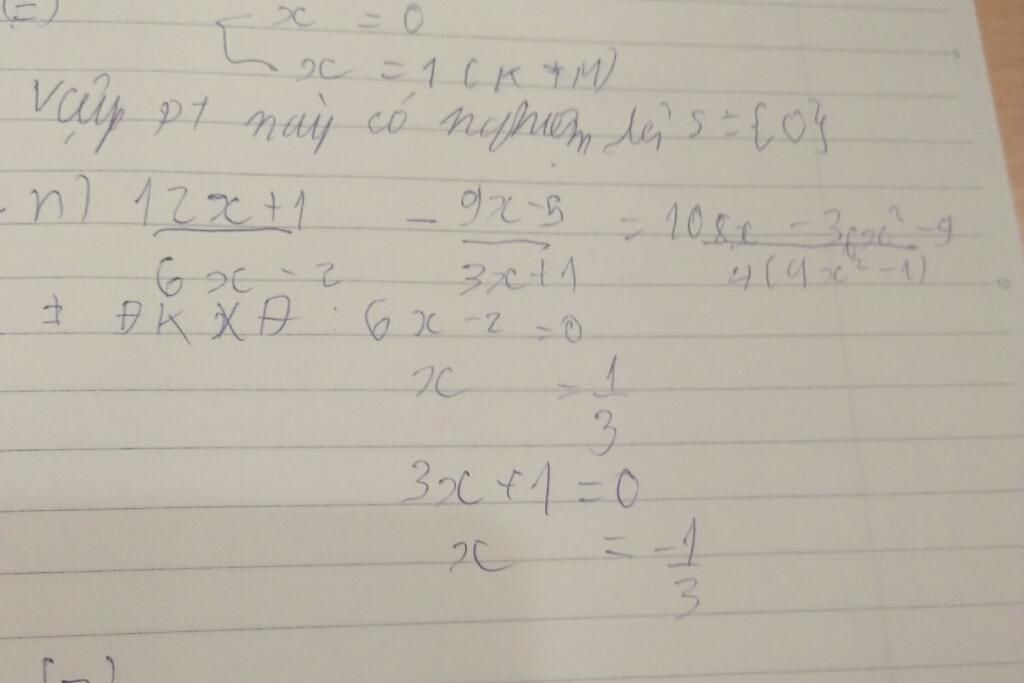 (=) x = 0
x = 1 (KTM)
Vậy pt này có nghiệm là S = {0}
n) 12x+1 / 6x-2 - 9x-5 / 3x+1 = 108x - 36x² - 9 / 4(9x² - 1)
ĐKXĐ : 6x - 2 = 0
x = 1/3
3x + 1 = 0
x = -1/3